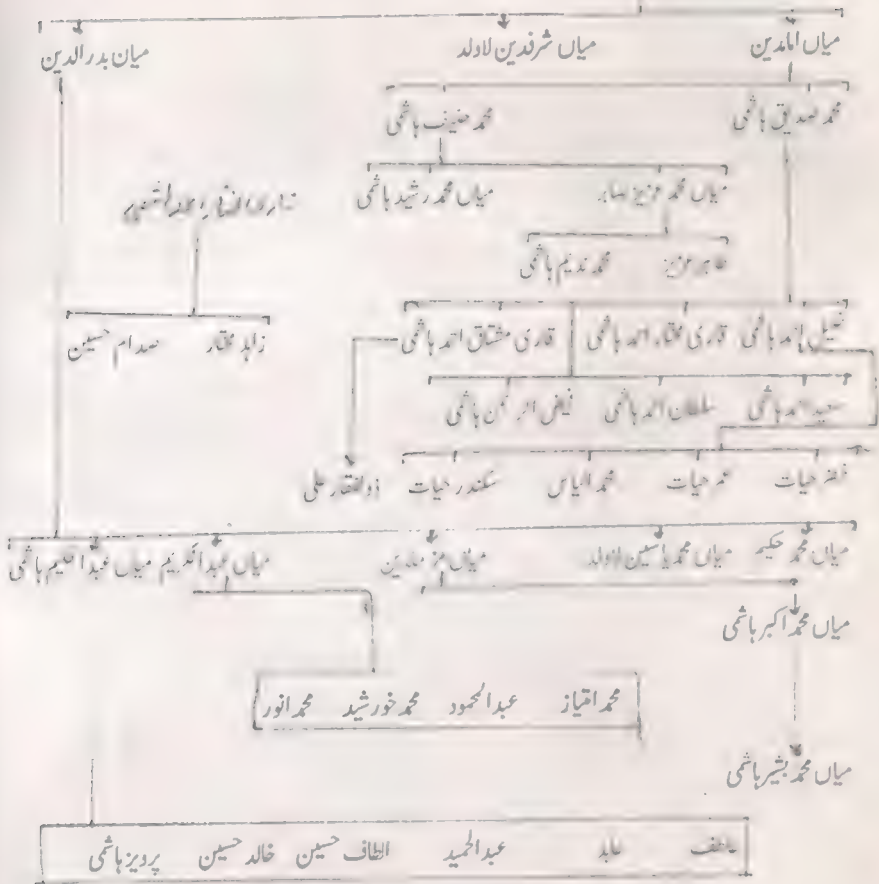 میاں امامدین میاں شرفدین لاولد میان بدرالدین
محمد صدیق ہاشمی محمد حنیف ہاشمی
میاں محمد عزیز صابر میاں محمد رشید ہاشمی
طاہر عزیز محمد ندیم ہاشمی
احمد ہاشمی قاری مختار احمد ہاشمی قاری مشتاق احمد ہاشمی زاہد مختار صدام حسین
سعید احمد ہاشمی سلطان احمد ہاشمی فیاض الرحمن ہاشمی
خضر حیات عمر حیات محمد الیاس سکندر حیات ذوالفقار علی
میاں محمد حکیم میاں محمد یاسین لاولد میاں میاں عبدالکریم میاں عبدالحلیم ہاشمی
میاں محمد اکبر ہاشمی
محمد امتیاز عبدالمحمود محمد خورشید محمد انور
میاں محمد بشیر ہاشمی
عاطف عابد عبدالحمید الطاف حسین خالد حسین پرویز ہاشمی